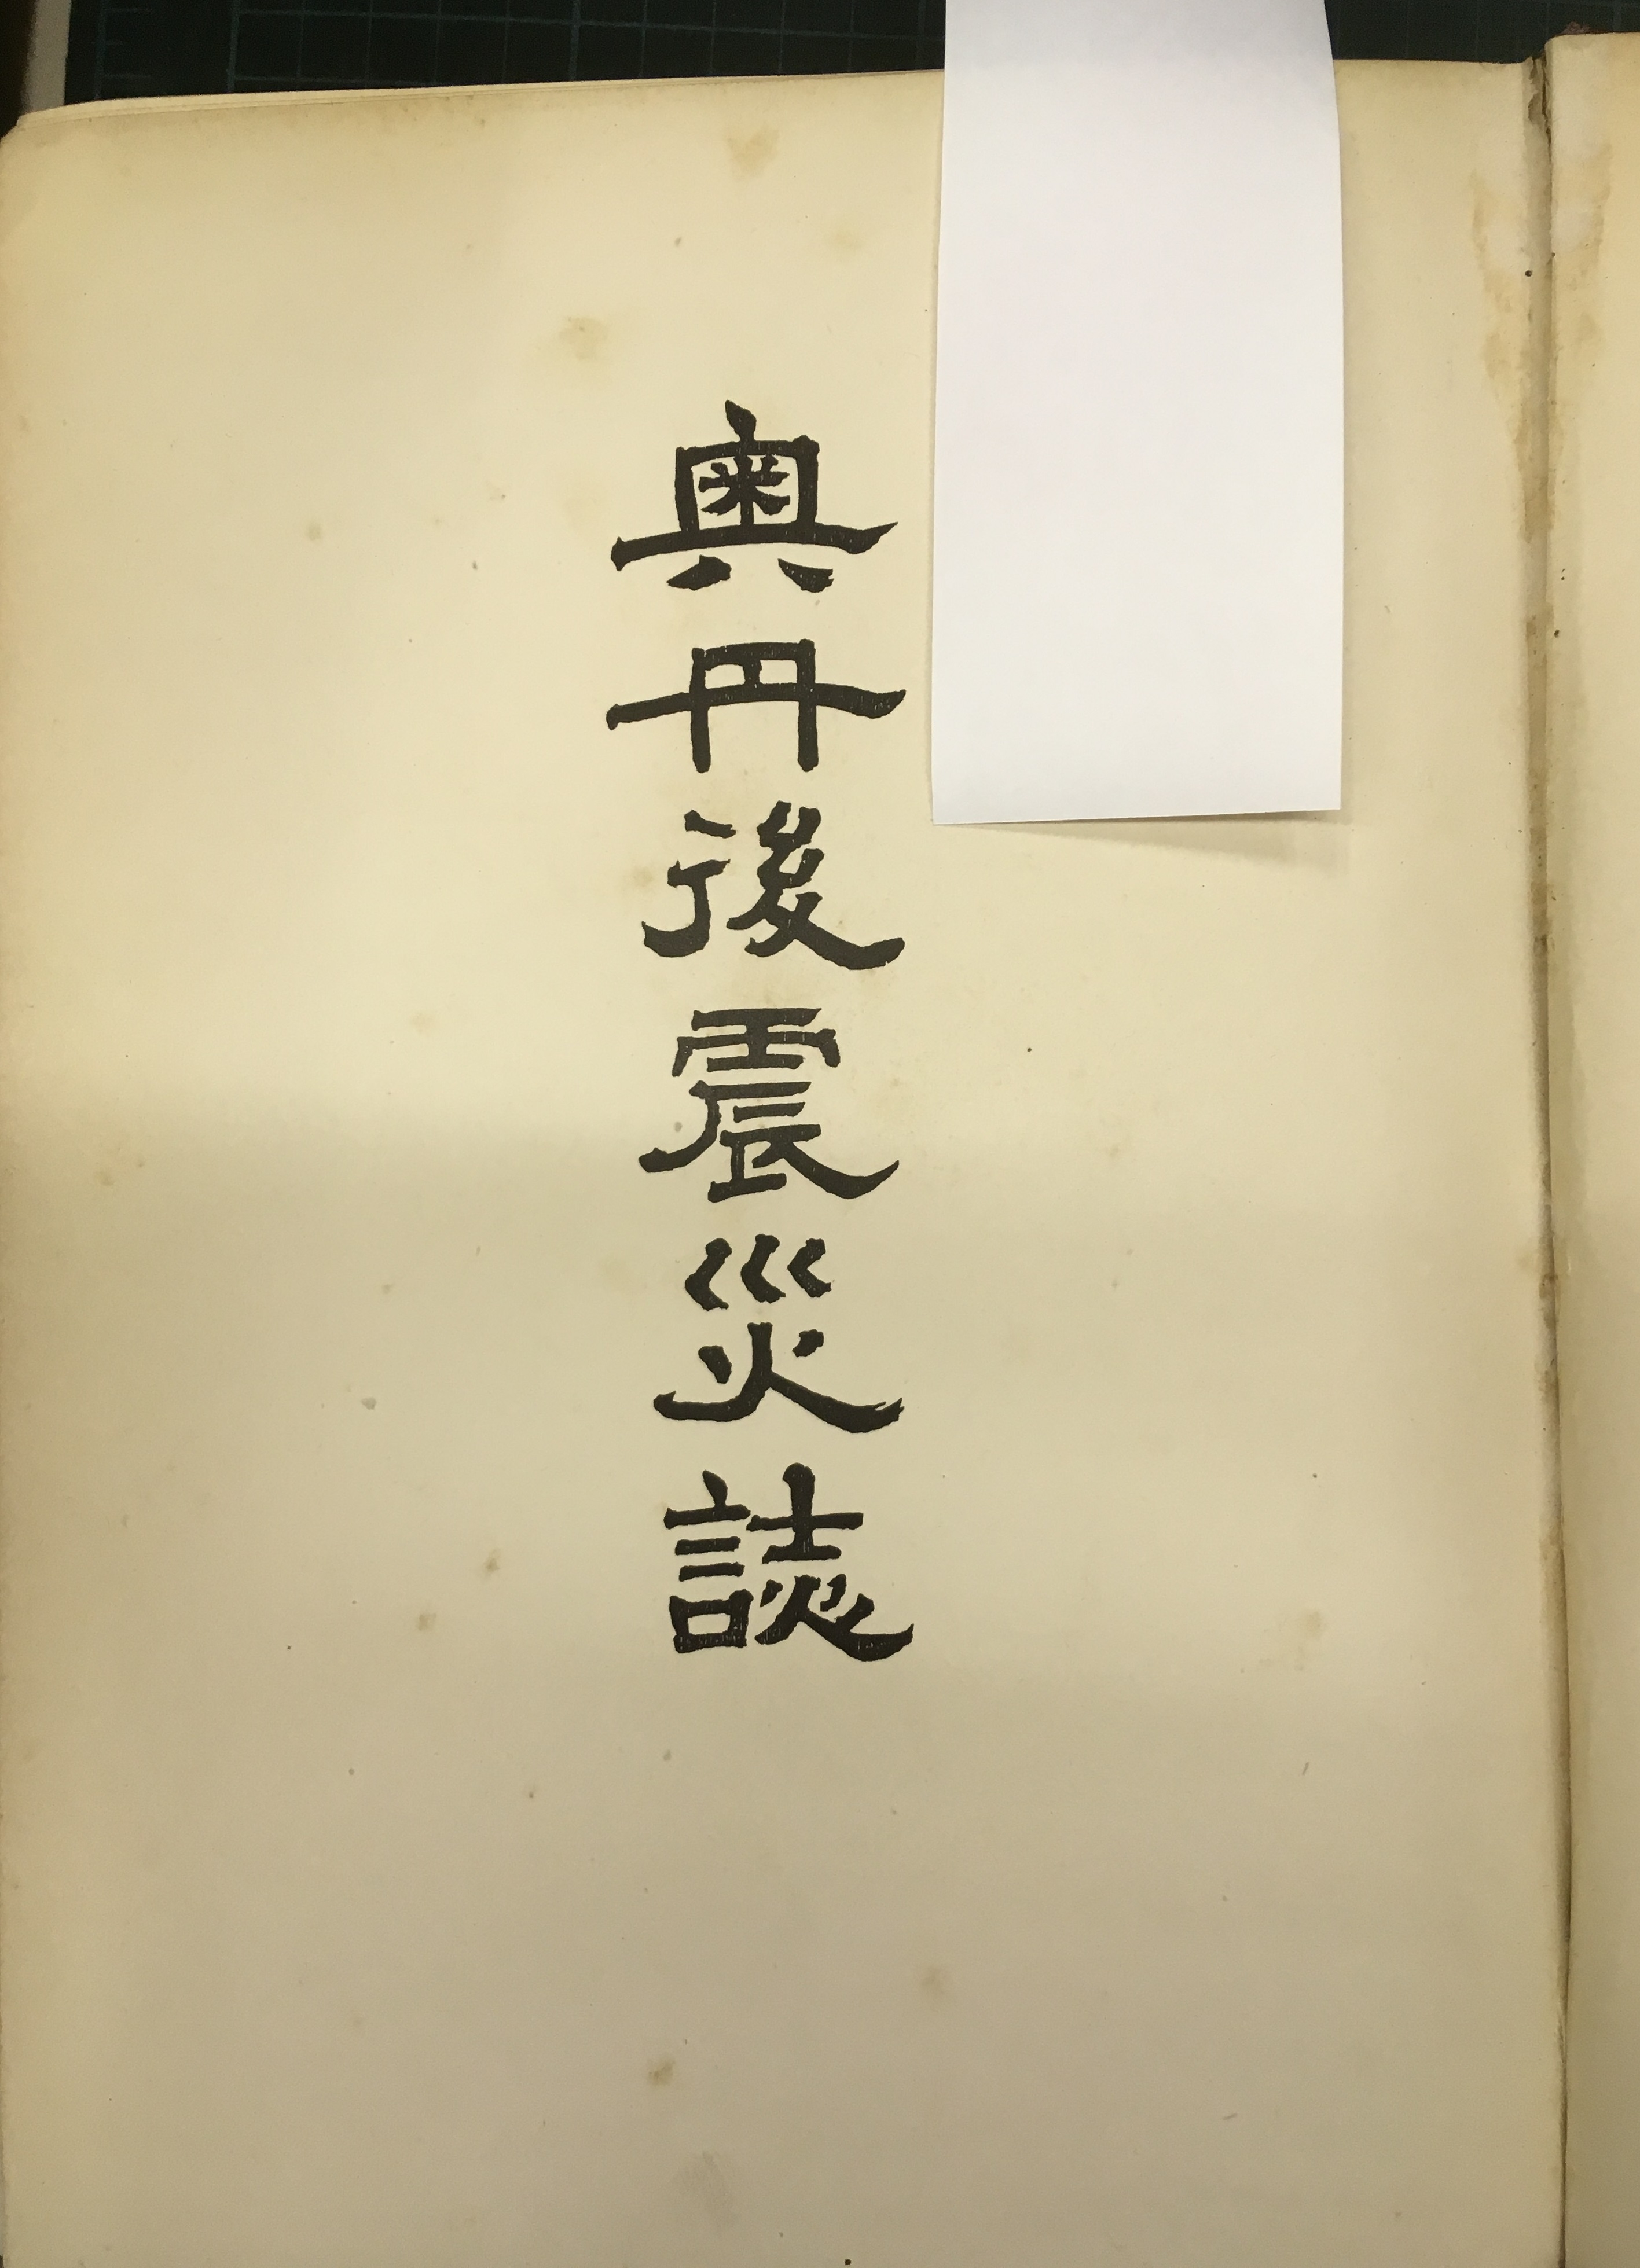 奥丹後震災誌